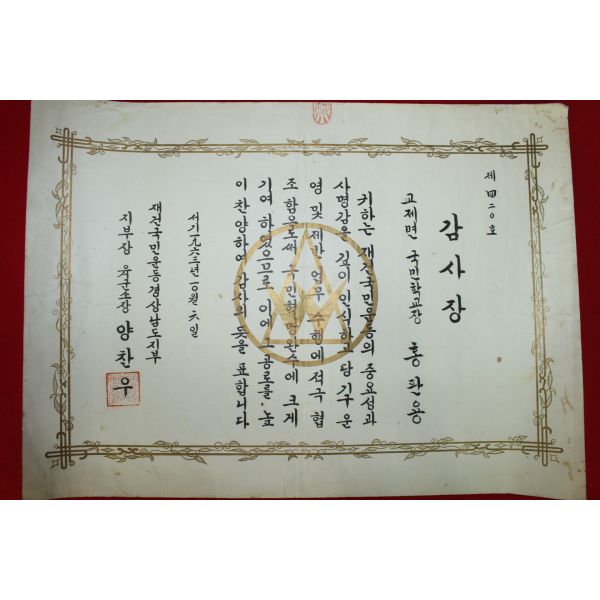 제四二0호
감사장
고제면 국민학교장 홍판용
귀하는 재건국민운동의 중요성과
사명감을 깊이 인식하고 당 기구 운
영 및 제반 업무 수행에 적극 협
조 함으로써 국민혁명완수에 크게
기여 하였으므로 이에 그 공로를 높
이 찬양하여 감사의 뜻을 표합니다
서기一九六二年 一0월 六일
재건국민운동경상남도지부
지부장 육군소장 양찬우